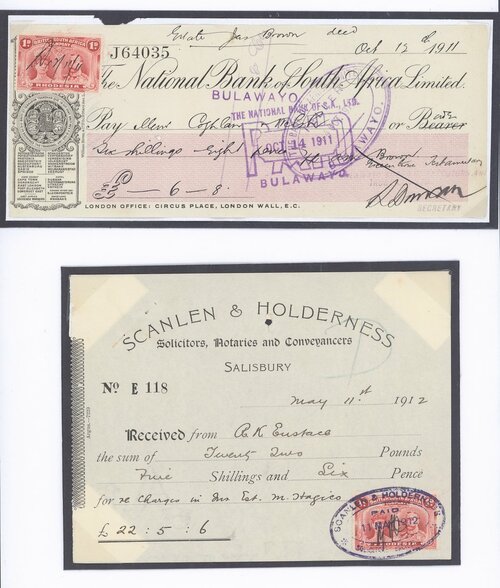 Estate Jas Brown decd
1d BRITISH SOUTH AFRICA COMPANY 1d
RHODESIA
J64035
Oct 12th 1911
The National Bank of South Africa Limited.
BULAWAYO
THE NATIONAL BANK OF S.A., LTD.
PAID
OCT 14 1911
BULAWAYO
Pay Messrs Coghlan or Bearer
Six shillings Eight pence
£ - 6 - 8.
SECRETARY
LONDON OFFICE: CIRCUS PLACE, LONDON WALL, E.C.
SCANLEN & HOLDERNESS
Solicitors, Notaries and Conveyancers
SALISBURY
No E 118
May 11th 1912
Received from A.K. Eustace
the sum of Twenty Two Pounds
Five Shillings and Six Pence
for re Charges in Ins. Est. M.
£ 22 : 5 : 6
SCANLEN & HOLDERNESS
PAID
11 MAY 1912
RHODESIA
Argus.-7259